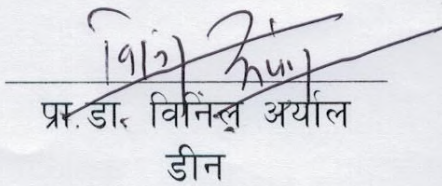 प्रा. डा. विनिल अर्याल
डीन